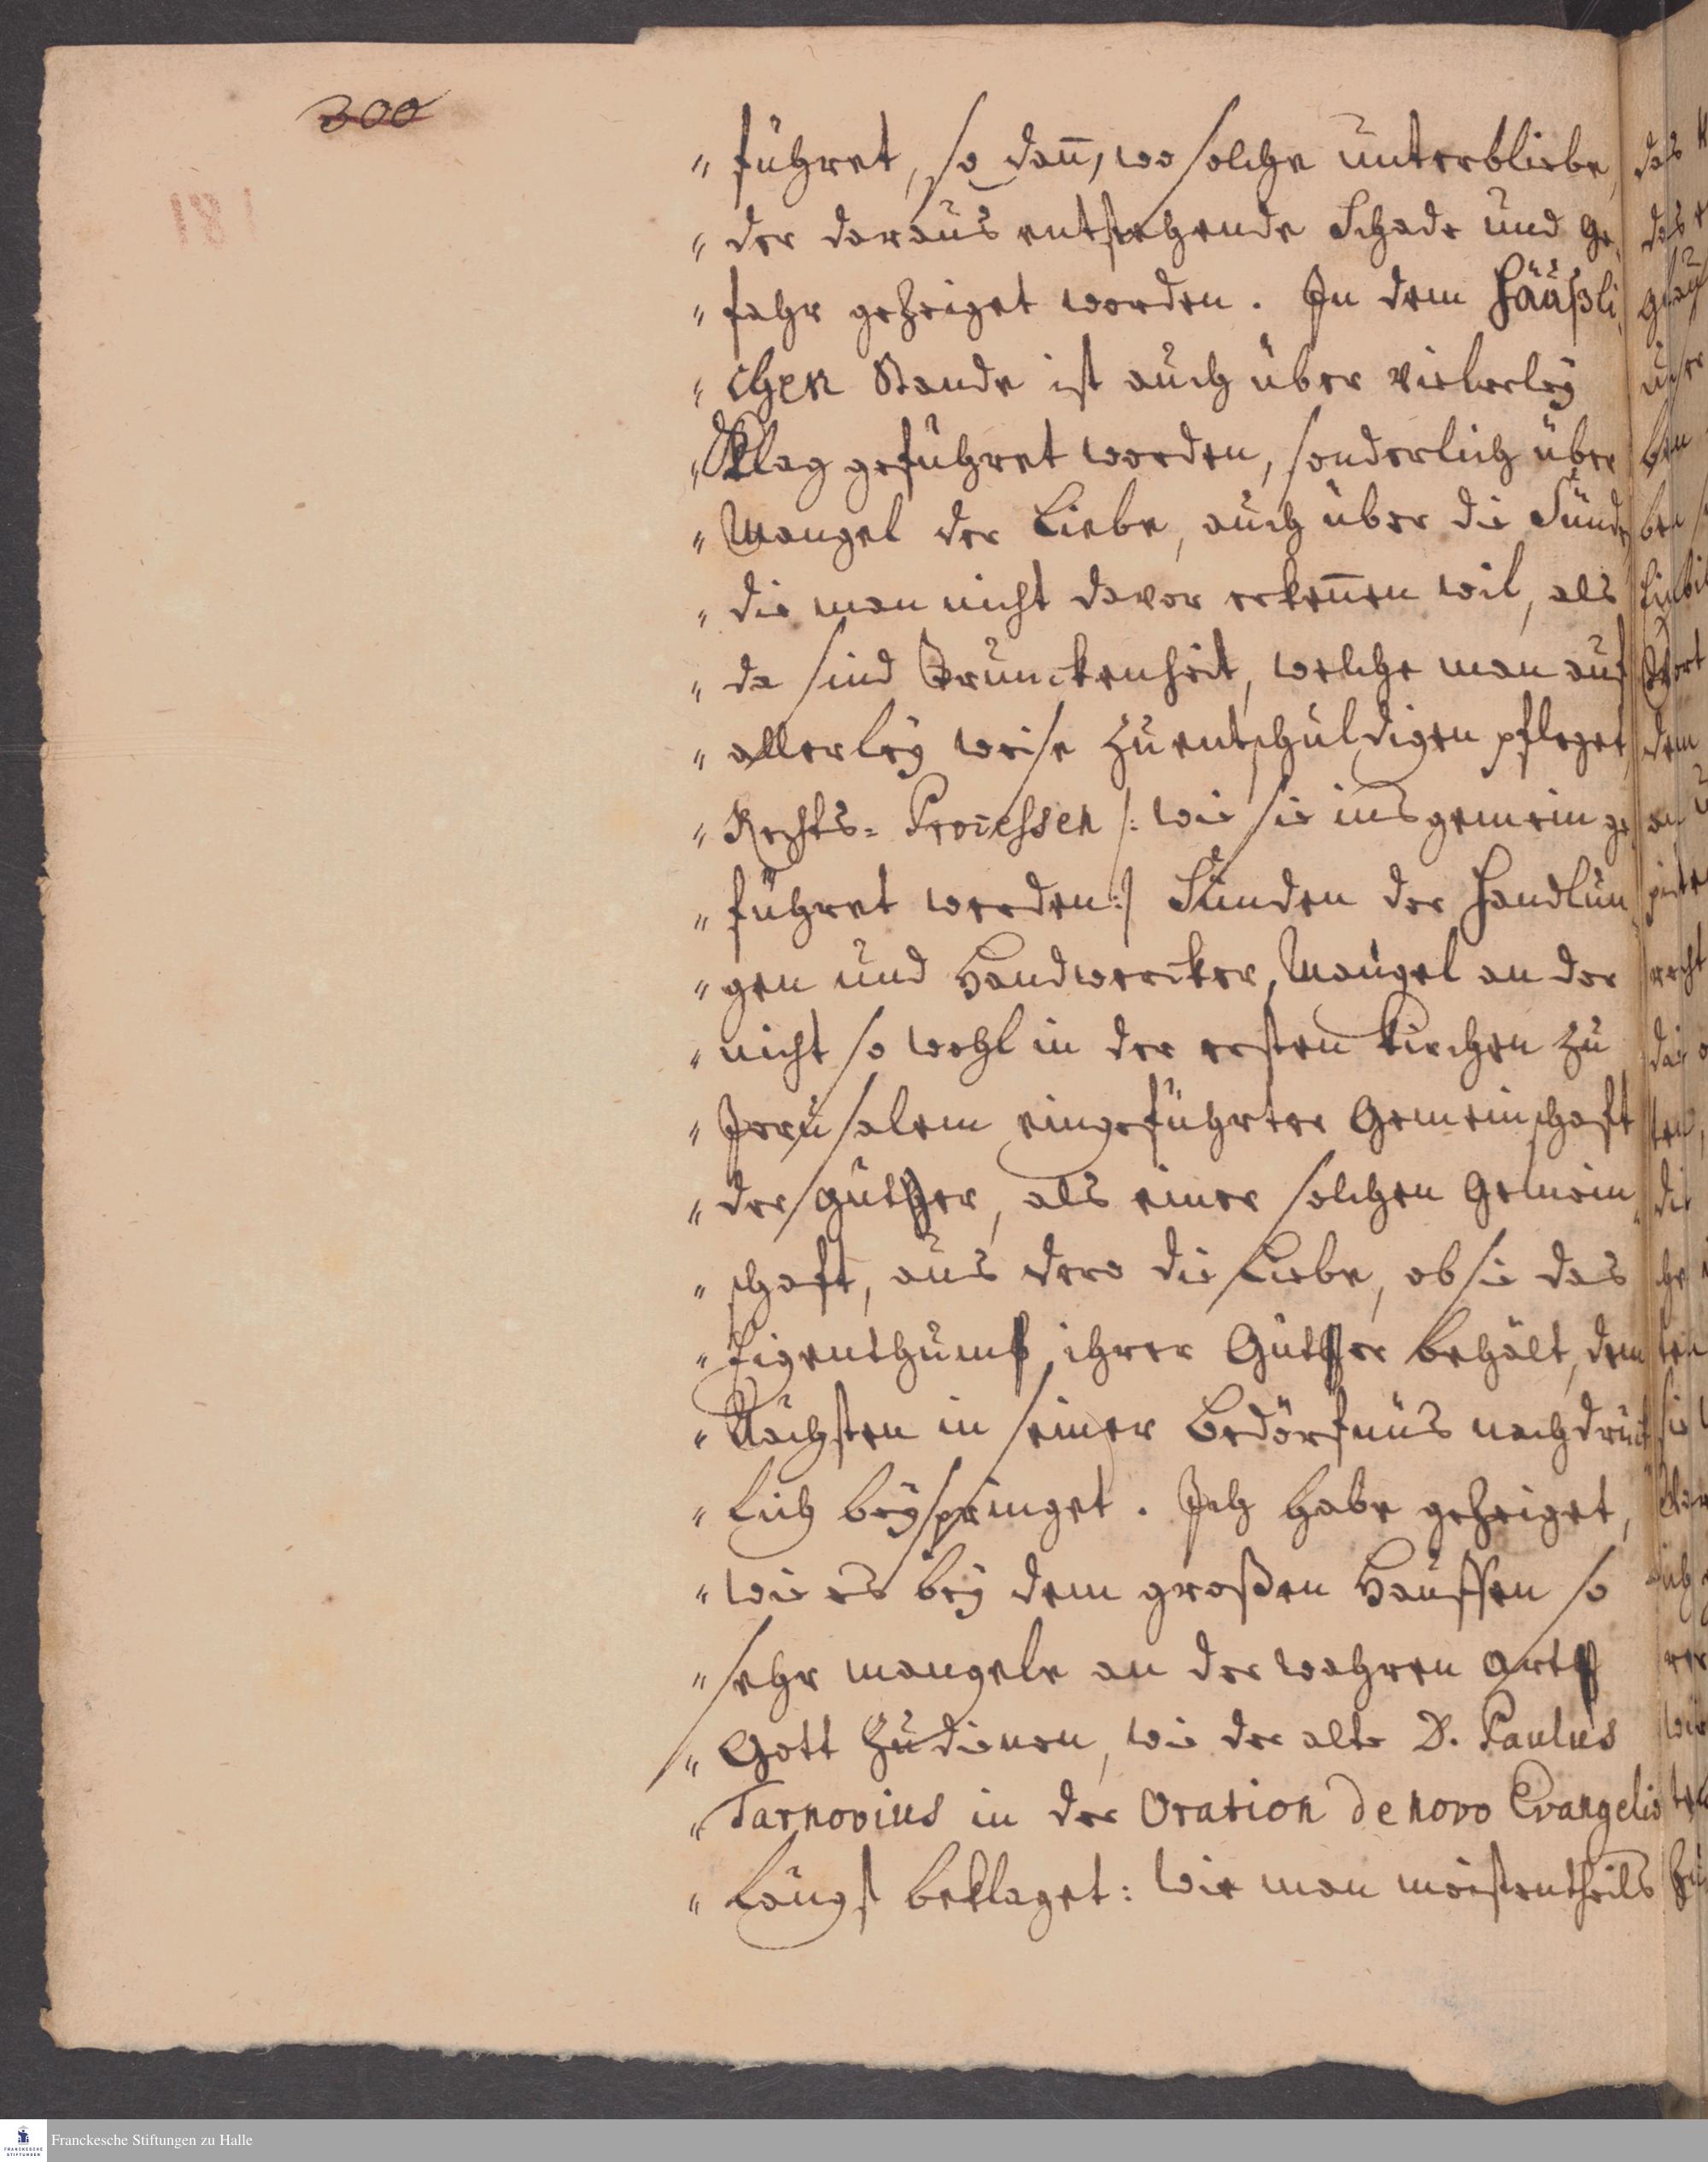 300
„ führet, so dan̅, wo solche unterbliebe,
„ der daraus entstehende Schade und ge,
„ fahr gezeiget worden. In dem Häußli,
„ chen Stande ist auch über vielerley
„ Klag geführet worden, sonderlich über
„ Mangel der Liebe, auch über die Sünde
„ die man nicht davor erken̅en wil, als
„ da sind Trunckenheit, welche man auf
„ allerley weise zuentschuldigen pfleget,
„ Rechts= Processen /: wie sie insgemein ge,
„ führet werden:/ Sünden der Handlun,
„ gen und Handwercker, Mangel an der
„ nicht so wohl in der ersten Kirchen zu
„ Jerusalem eingeführter Gemeinschaft
„ der Güther, als einer solchen Gemein,
„ schaft, aus dero die Liebe, ob sie das
„ Eigenthum ihrer Güther behält, dem
„ Nächsten in seiner Bedörfnüs nachdrück
„ lich beyspringet. Ich habe gezeiget,
„ wie es bey dem großen Hauffen so
„ sehr mangele an der wahren art
„ Gott zudienen, wie der alte D. Paulus
„ Tarnovius in der Oration de novo Evangelio
„ längst beklaget: Wie man meistentheils
Franckesche Stiftungen zu Halle